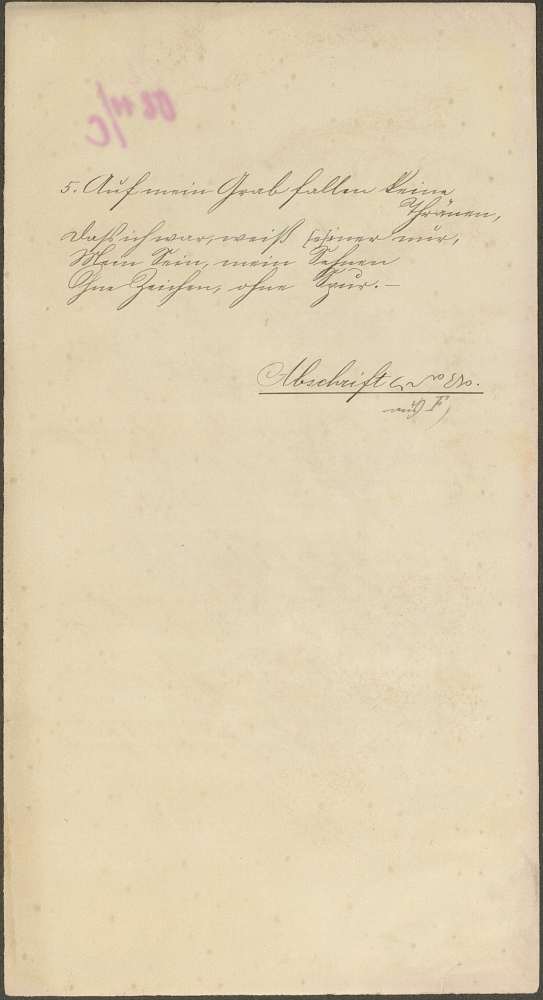 5. Auf mein Grab fallen keine
Thränen,
Dass ich war, weiß Einer nur,
Mein Sein, mein Sehnen
Ohne Zeichen, ohne Spur. –
Abschrift
aus F)